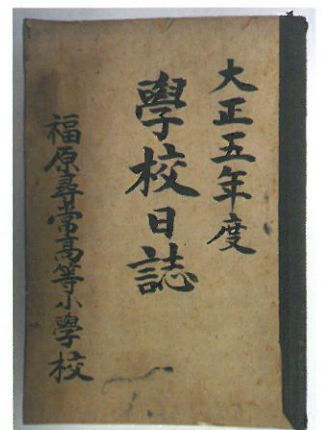 大正五年度
學校日誌
福原尋常高等小學校